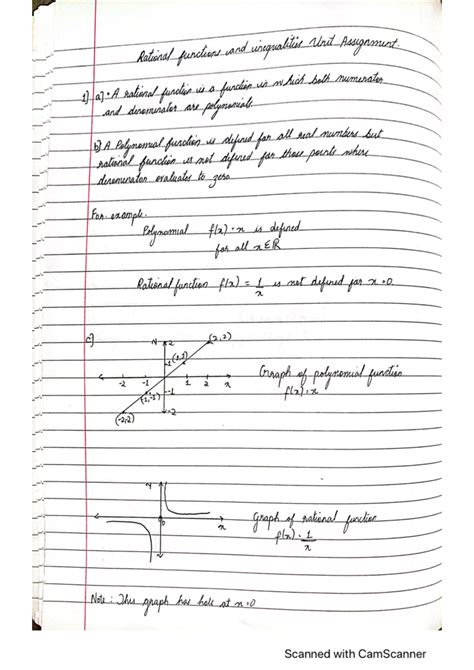 Rational functions and inequalities Unit Assignment.
1) a) • A rational function is a function in which both numerator
and denominator are polynomials.
b) A Polynomial function is defined for all real numbers but
rational function is not defined for those points where
denominator evaluates to zero.
For example.
Polynomial f(x) = x is defined
for all x∈R
Rational function f(x) = 1/x is not defined for x=0.
c)
2 (2,2)
1 (1,1)
-2 -1 1 2 x
(-1,-1) -1
(-2,2) -2
Graph of polynomial function
f(x) = x
0 x
Graph of rational function
f(x) = 1/x
Note: This graph has hole at x=0
Scanned with CamScanner